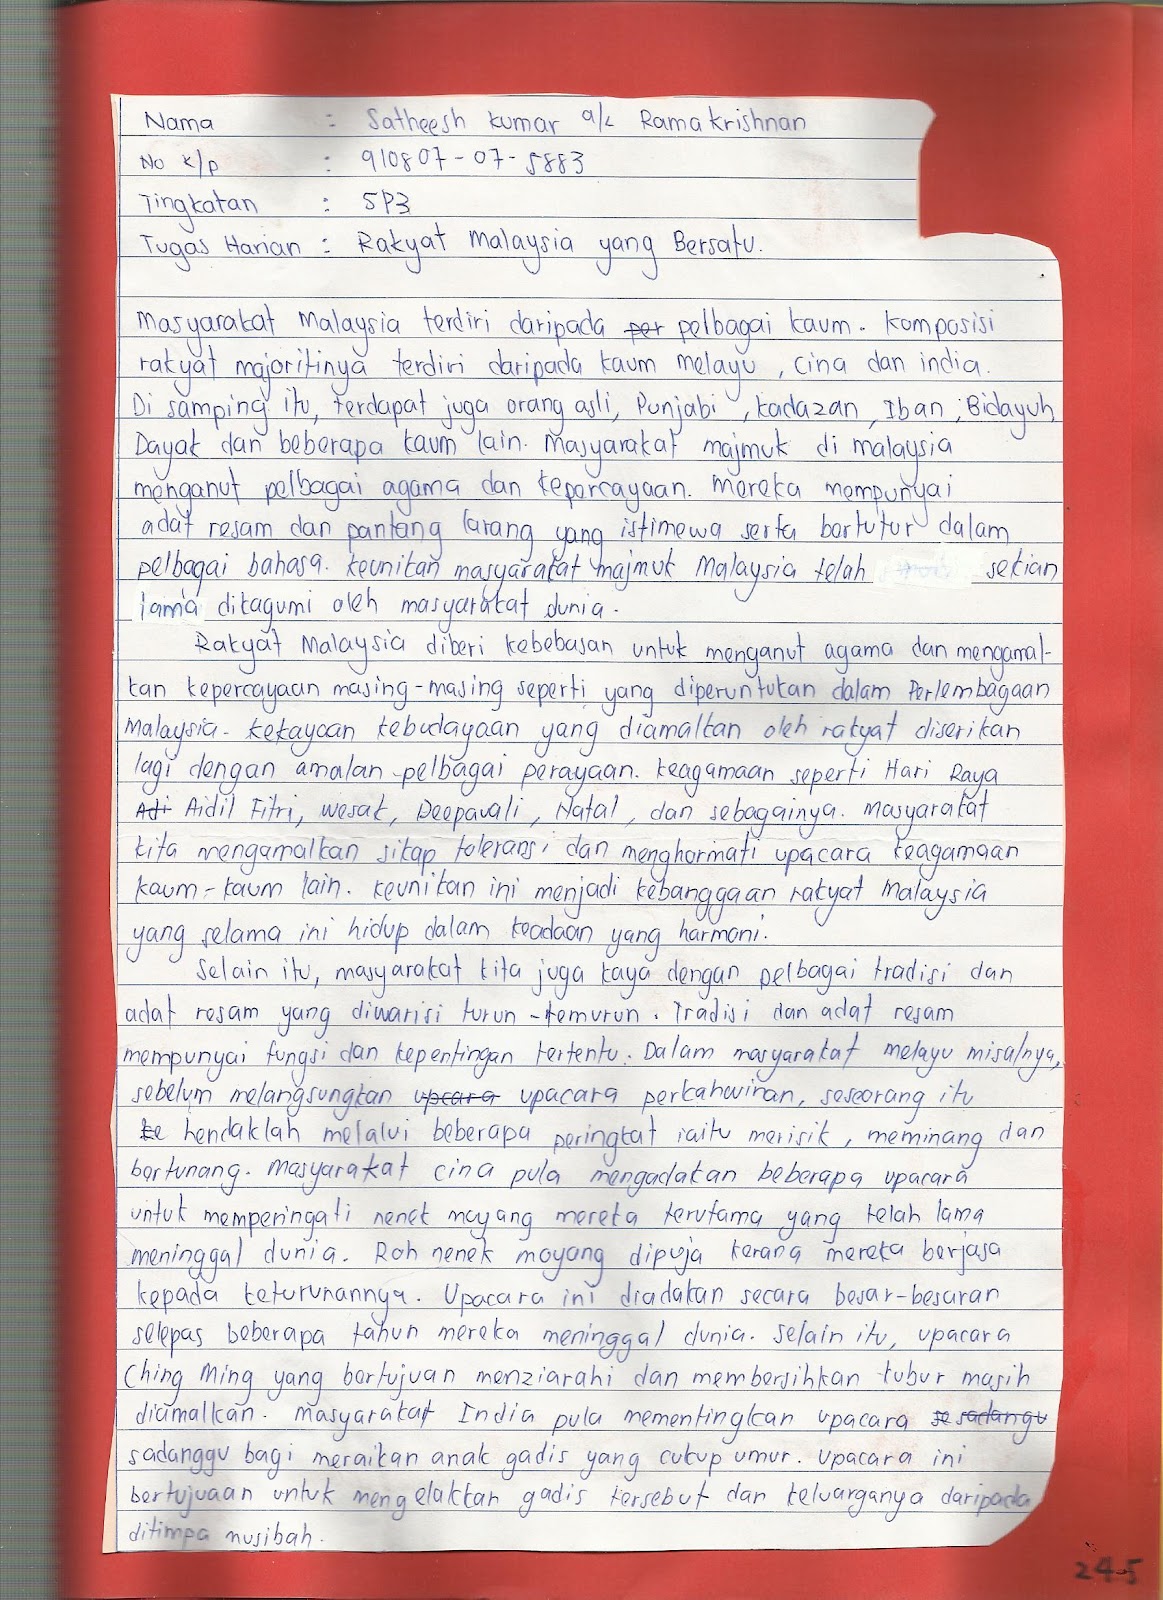 Nama : Satheesh Kumar a/L Ramakrishnan
No K/p : 910807-07-5883
Tingkatan : 5P3
Tugas Harian : Rakyat Malaysia yang Bersatu.
Masyarakat Malaysia terdiri daripada per pelbagai kaum. Komposisi
rakyat majoritinya terdiri daripada kaum melayu, cina dan india.
Di samping itu, terdapat juga orang asli, Punjabi, Kadazan, Iban, Bidayuh,
Dayak dan beberapa kaum lain. Masyarakat majmuk di malaysia
menganut pelbagai agama dan kepercayaan. Mereka mempunyai
adat resam dan pantang larang yang istimewa serta bertutur dalam
pelbagai bahasa. Keunikan masyarakat majmuk Malaysia telah sekian
lama dikagumi oleh masyarakat dunia.
Rakyat Malaysia diberi kebebasan untuk menganut agama dan mengamal-
kan kepercayaan masing-masing seperti yang diperuntukan dalam Perlembagaan
Malaysia. Kekayaan kebudayaan yang diamalkan oleh rakyat diserikan
lagi dengan amalan pelbagai perayaan. Keagamaan seperti Hari Raya
Adi Aidil Fitri, Wesak, Deepavali, Natal, dan sebagainya. Masyarakat
kita mengamalkan sikap toleransi dan menghormati upacara keagamaan
kaum-kaum lain. Keunikan ini menjadi kebanggaan rakyat Malaysia
yang selama ini hidup dalam keadaan yang harmoni.
Selain itu, masyarakat kita juga kaya dengan pelbagai tradisi dan
adat resam yang diwarisi turun-temurun. Tradisi dan adat resam
mempunyai fungsi dan kepentingan tertentu. Dalam masyarakat melayu misalnya,
sebelum melangsungkan upcara upacara perkahwinan, seseorang itu
ke hendaklah melalui beberapa peringkat iaitu merisik, meminang dan
bertunang. Masyarakat cina pula mengadakan beberapa upacara
untuk memperingati nenek moyang mereka terutama yang telah lama
meninggal dunia. Roh nenek moyang dipuja kerana mereka berjasa
kepada keturunannya. Upacara ini diadakan secara besar-besaran
selepas beberapa tahun mereka meninggal dunia. Selain itu, upacara
Ching Ming yang bertujuan menziarahi dan membersihkan kubur masih
diamalkan. Masyarakat India pula mementingkan upacara se sadangu
sadanggu bagi meraikan anak gadis yang cukup umur. Upacara ini
bertujuaan untuk mengelakkan gadis tersebut dan keluarganya daripada
ditimpa musibah.
24-5